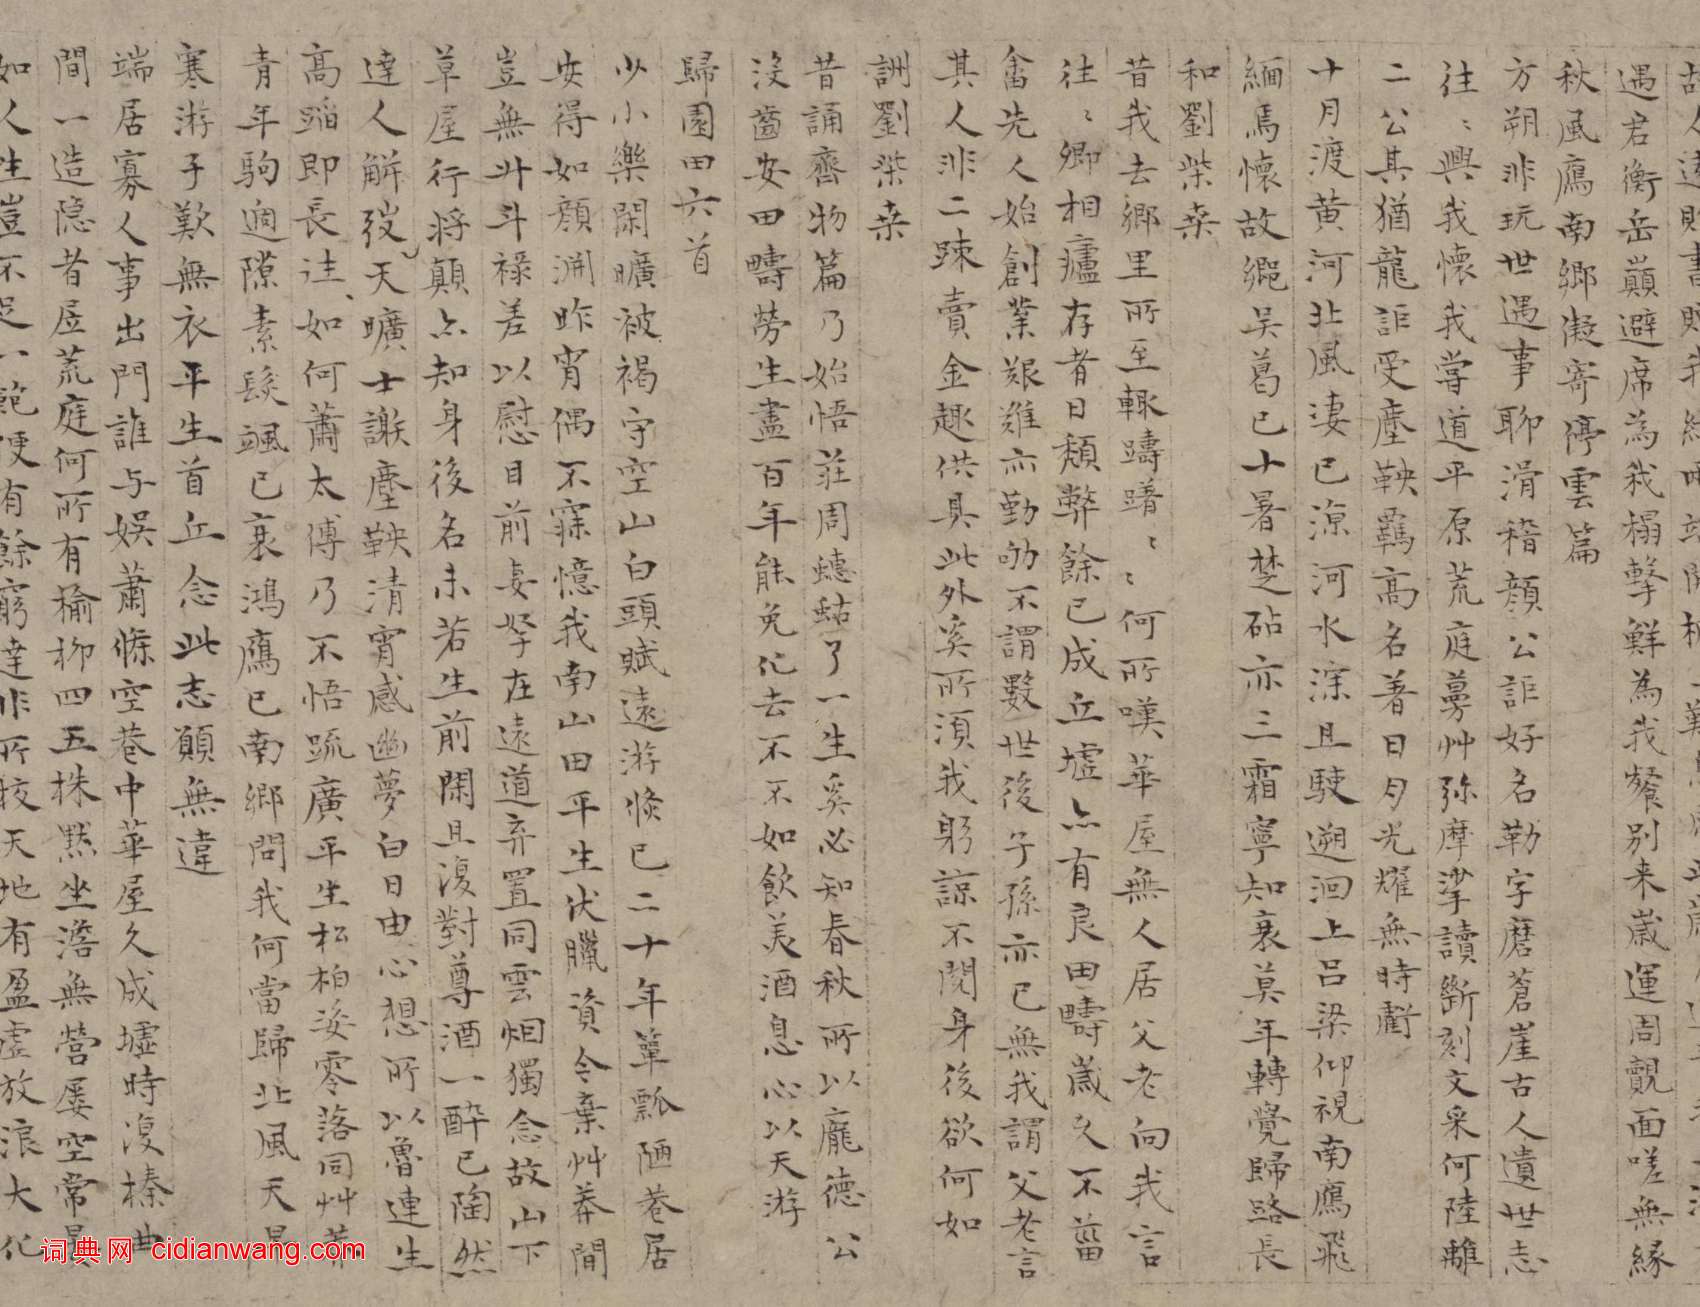 遇君衡岳巔避席為我榻擊鮮為我餐別来歲運周覿面嗟無緣
秋風鴈南鄉凝寄停雲篇
方朔非玩世遇事聊滑稽顔公詎好名勒字磨蒼崖古人遺世志
往〻興我懷我嘗道平原荒庭蔓艸弥摩挲讀斷刻文采何陸離
二公其猶龍詎受塵鞅羈高名著日月光耀無時虧
十月渡黄河北風淒已涼河水深且駛遡洄上吕梁仰視南鴈飛
緬焉懷故鄉吴葛已十暑楚砧亦三霜寧知衰莫年轉覺歸路長
和劉柴桒
昔我去鄉里所至輒躊躇〻〻何所嘆華屋無人居父老向我言
往〻卿相廬存者日頽弊餘已成丘墟亦有良田疇歲久不菑
畬先人始創業艱難亦勤劬不謂數世後子孫亦已無我謂父老言
其人非二踈賣金趣供具此外奚所須我躬諒不閱身後欲何如
詶劉柴桒
昔誦齊物篇乃始悟莊周蟪蛄了一生奚必知春秋所以龐德公
没齒安田疇勞生盡百年能免化去不不如飲美酒息心以天游
歸園田六首
少小樂閑曠被褐守空山白頭賦遠游倏已二十年簞瓢陋巷居
安得如顔渊昨宵偶不寐憶我南山田平生伏臘資今棄艸莽間
豈無升斗禄差以慰目前妻孥在遠道弃置同雲烟獨念故山下
草屋行将顛亦知身後名未若生前閑且復對尊酒一醉已陶然
達人解弢天曠士謝塵鞅清宵感幽夢白日由心想所以魯連生
高蹈即長往如何蕭太傅乃不悟踈廣平生松柏姿零落同艸莽
青年駒過隙素髮颯已衰鴻鴈已南鄉問我何當歸北風天早
寒游子歎無衣平生首丘念此志願無違
端居寡人事出門誰与娱蕭條空巷中華屋久成墟時復榛曲
間一造隐者居荒庭何所有榆柳四五株黙坐澹無營屢空常晏
如人生豈不足一飽便有餘窮達非所校天地有盈虚放浪大化
词典网 cidianwang.com